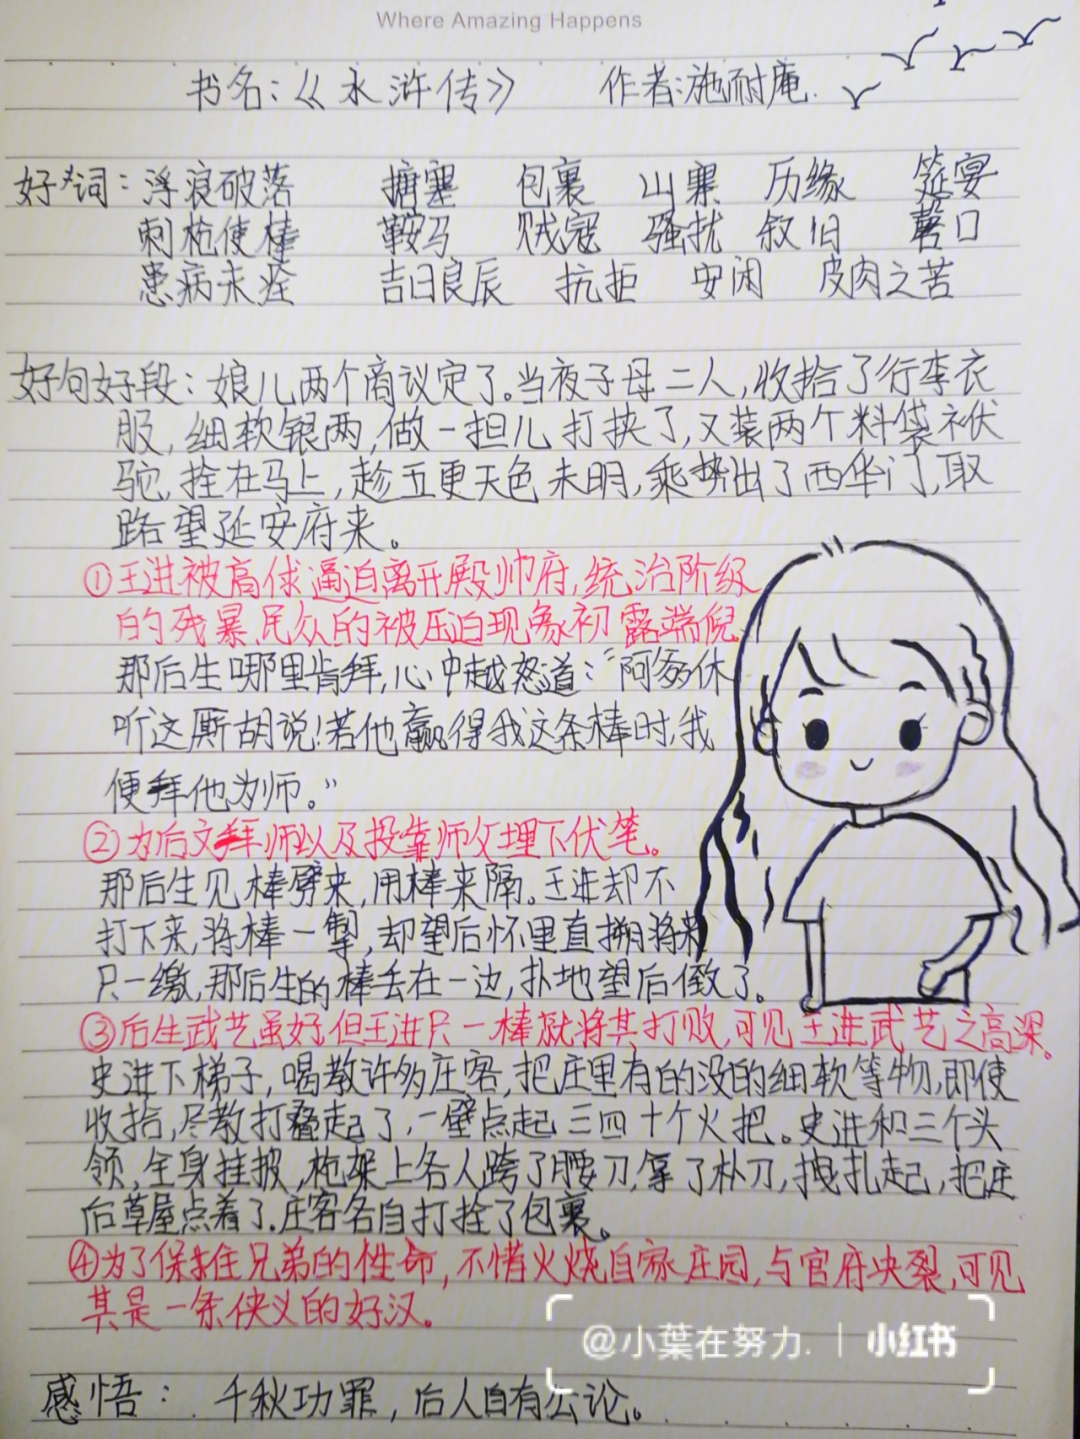 Where Amazing Happens
书名:《水浒传》 作者:施耐庵.
好词: 浮浪破落 搪塞 包裹 山寨 历缘 筵宴
刺枪使棒 鞍马 贼寇 骚扰 叙旧 磬口
患病未痊 吉日良辰 抗拒 安闲 皮肉之苦
好句好段: 娘儿两个商议定了。当夜子母二人,收拾了行李衣
服,细软银两,做一担儿打挟了,又装两个料袋袱
驼,拴在马上,趁五更天色未明,乘势出了西华门,取
路望延安府来。
①王进被高俅逼迫离开殿帅府,统治阶级
的残暴民众的被压迫现象初露端倪
那后生哪里肯拜,心中越怒道:“阿爹休
听这厮胡说!若他赢得我这条棒时,我
便拜他为师。”
②为后文拜师以及投靠师父埋下伏笔。
那后生见棒劈来,用棒来隔。王进却不
打下来,将棒一掣,却望后怀里直搠将来
只一缴,那后生的棒丢在一边,扑地望后倒了。
③后生武艺虽好,但王进只一棒就将其打败,可见王进武艺之高深。
史进下梯子,喝教许多庄客,把庄里有的没的细软等物,即使
收拾,尽教打叠起了,一壁点起三四十个火把。史进和三个头
领,全身挂披,枪架上各人跨了腰刀,拿了朴刀,拽扎起,把庄
后草屋点着了.庄客各自打拴了包裹。
④为了保护住兄弟的性命,不惜火烧自家庄园,与官府决裂,可见
其是一条侠义的好汉。
@小葉在努力. | 小红书
感悟: 千秋功罪,后人自有公论。